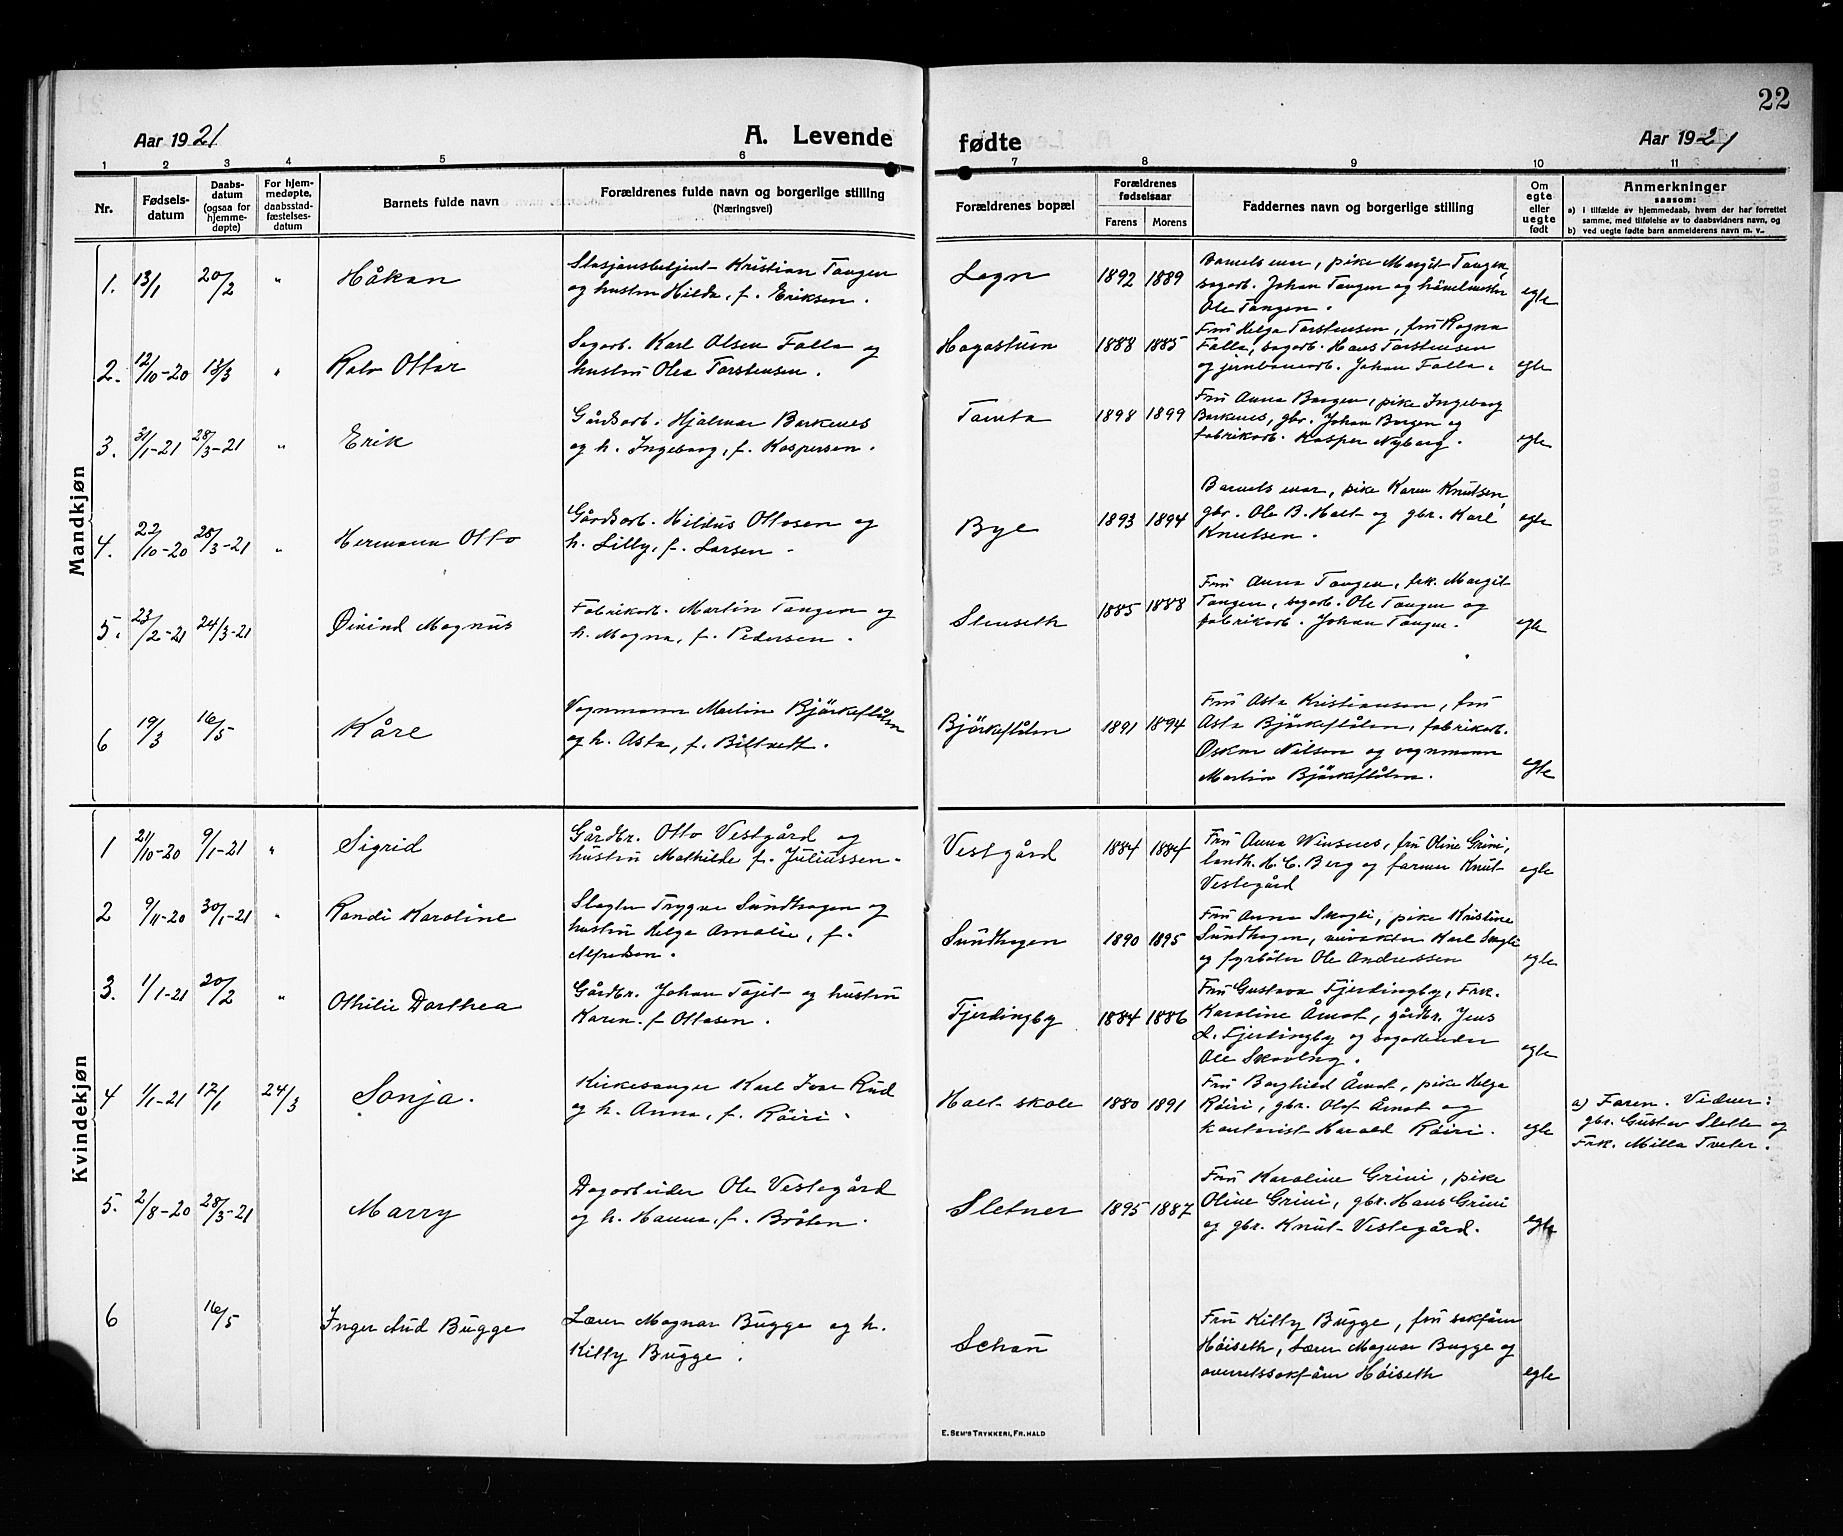 22
Aar 1921
A. Levende
fødte
Aar 1921
1 2 3 4 5 6 7 8 9 10 11
Nr.
Fødsels-
datum
Daabs-
datum
(ogsaa for
hjemme-
døpte)
For hjem-
medøpte,
daabsstad-
fæstelses-
datum
Barnets fulde navn
Forældrenes fulde navn og borgerlige stilling
(Næringsvei)
Forældrenes bopæl
Forældrenes
fødselsaar
Farens Morens
Faddernes navn og borgerlige stilling
Om
egte
eller
uegte
født
Anmerkninger
saasom:
a) i tilfælde av hjemmedaab, hvem der har forrettet
samme, med tilføielse av to daabsvidners navn, og
b) ved uegte fødte barn anmelderens navn m. v..
Mandkjøn
1. 13/1 20/2 " Håkan
Stasjonsbetjent Kristian Tangen
og hustru Hilda, f. Eriksen.
Logn 1892 1889
Barnets mor, pike Margit Tangen,
sagarb. Johan Tangen og
Ole Tangen.
egte
2. 12/10-20 13/3 " Rolv Ottar
Sagarb. Karl Olsen Falla og
hustru Olea Torstensen.
Hagastuen 1888 1885
Fru Helga Torstensen, fru Ragna
Falla, sagarb. Hans Torstensen
og jernbanearb. Johan Falla.
egte
3. 31/1-21 28/3-21 " Erik
Gårdsarb. Hjalmar Barkenes
og h. Ingeborg, f. Kaspersen.
Tomta 1898 1899
Fru Anna Borgen, pike Ingeborg
Barkenes, gbr. Johan Borgen og
fabrikarb. Kasper Nyborg.
egte
4. 22/10-20 28/3-21 " Hermann Otto
Gårdsarb. Hildus Ottosen og
h. Lilly, f. Larsen.
Bye 1893 1894
Barnets mor, pike Karen Knutsen,
gbr. Ole B. Holt og gbr. Karl
Knutsen.
egte
5. 23/2-21 24/3-21 Øivind Magnus
Fabrikarb. Martin Tangen og
h. Magna, f. Pedersen.
Stenseth 1885 1888
Fru Anna Tangen, frk. Margit
Tangen, sagarb. Ole Tangen og
fabrikarb. Johan Tangen.
egte
6 19/3 16/5 Kåre
Vognmann Martin Björkeflåten
og h. Asta, f. Biltvedt.
Björkeflåten 1891 1894
Fru Asta Kristiansen, fru
Asta Björkeflåten, fabrikarb.
Oskar Nilsen og vognmann
Martin Björkeflåten.
egte
Kvindekjøn
1 21/10-20 9/1-21 " Sigrid
Gårdbr. Otto Vestgård og
hustru Mathilde f. Juliussen.
Vestgård 1884 1884
Fru Anna Winsnes, fru Oline Grini,
landh. H. C. Berg og farmer Knut
Vestegård
egte
2 9/11-20 30/1-21 " Randi Karoline
Slagter Trygve Sundhagen og
hustru Helga Amalie, f.
Alfredsen.
Sundhagen 1890 1895
Fru Anna Skogli, pike Kristine
Sundhagen, Karl Skogli
og fyrbøter Ole Andreassen
egte
3. 1/1-21 20/2 " Othilie Dorthea
Gårdbr. Johan Tøjet og hustru
Karen f. Ottosen.
Fjerdingby 1884 1886
Fru Gustava Fjerdingby, Frk.
Karoline Åmot, gårdbr. Jens
L. Fjerdingby og sagarbeider
Ole
egte
4 1/1-21 17/1 24/3 Sonja.
Kirkesanger Karl Ivar Rud
og h. Anna, f. Röiri.
Holt skole 1880 1891
Fru Borghild Åmot, pike Helga
Röiri, gbr. Olof Åmot og
kontorist Harald Röiri.
egte
a) Faren. Vidner:
gbr. Gustav Slette og
Frk. Milla Tveter.
5. 2/8-20 28/3-21 Marry
Dagarbeider Ole Vestegård
og h. Hanna, f. Bråten.
Sletner 1895 1887
Fru Karoline Grini, pike
Oline Grini, gbr. Hans Grini
og gbr. Knut Vestegård.
egte
6 16/5 Inger Aud Bugge
Lærer Magnar Bugge og h.
Killy Bugge.
Schau
Fru Killy Bugge, fru sakfører
Höiseth, Lærer Magnar Bugge og
overretssakfører Höiseth
egte
E. SEM'S TRYKKERI, FR.HALD